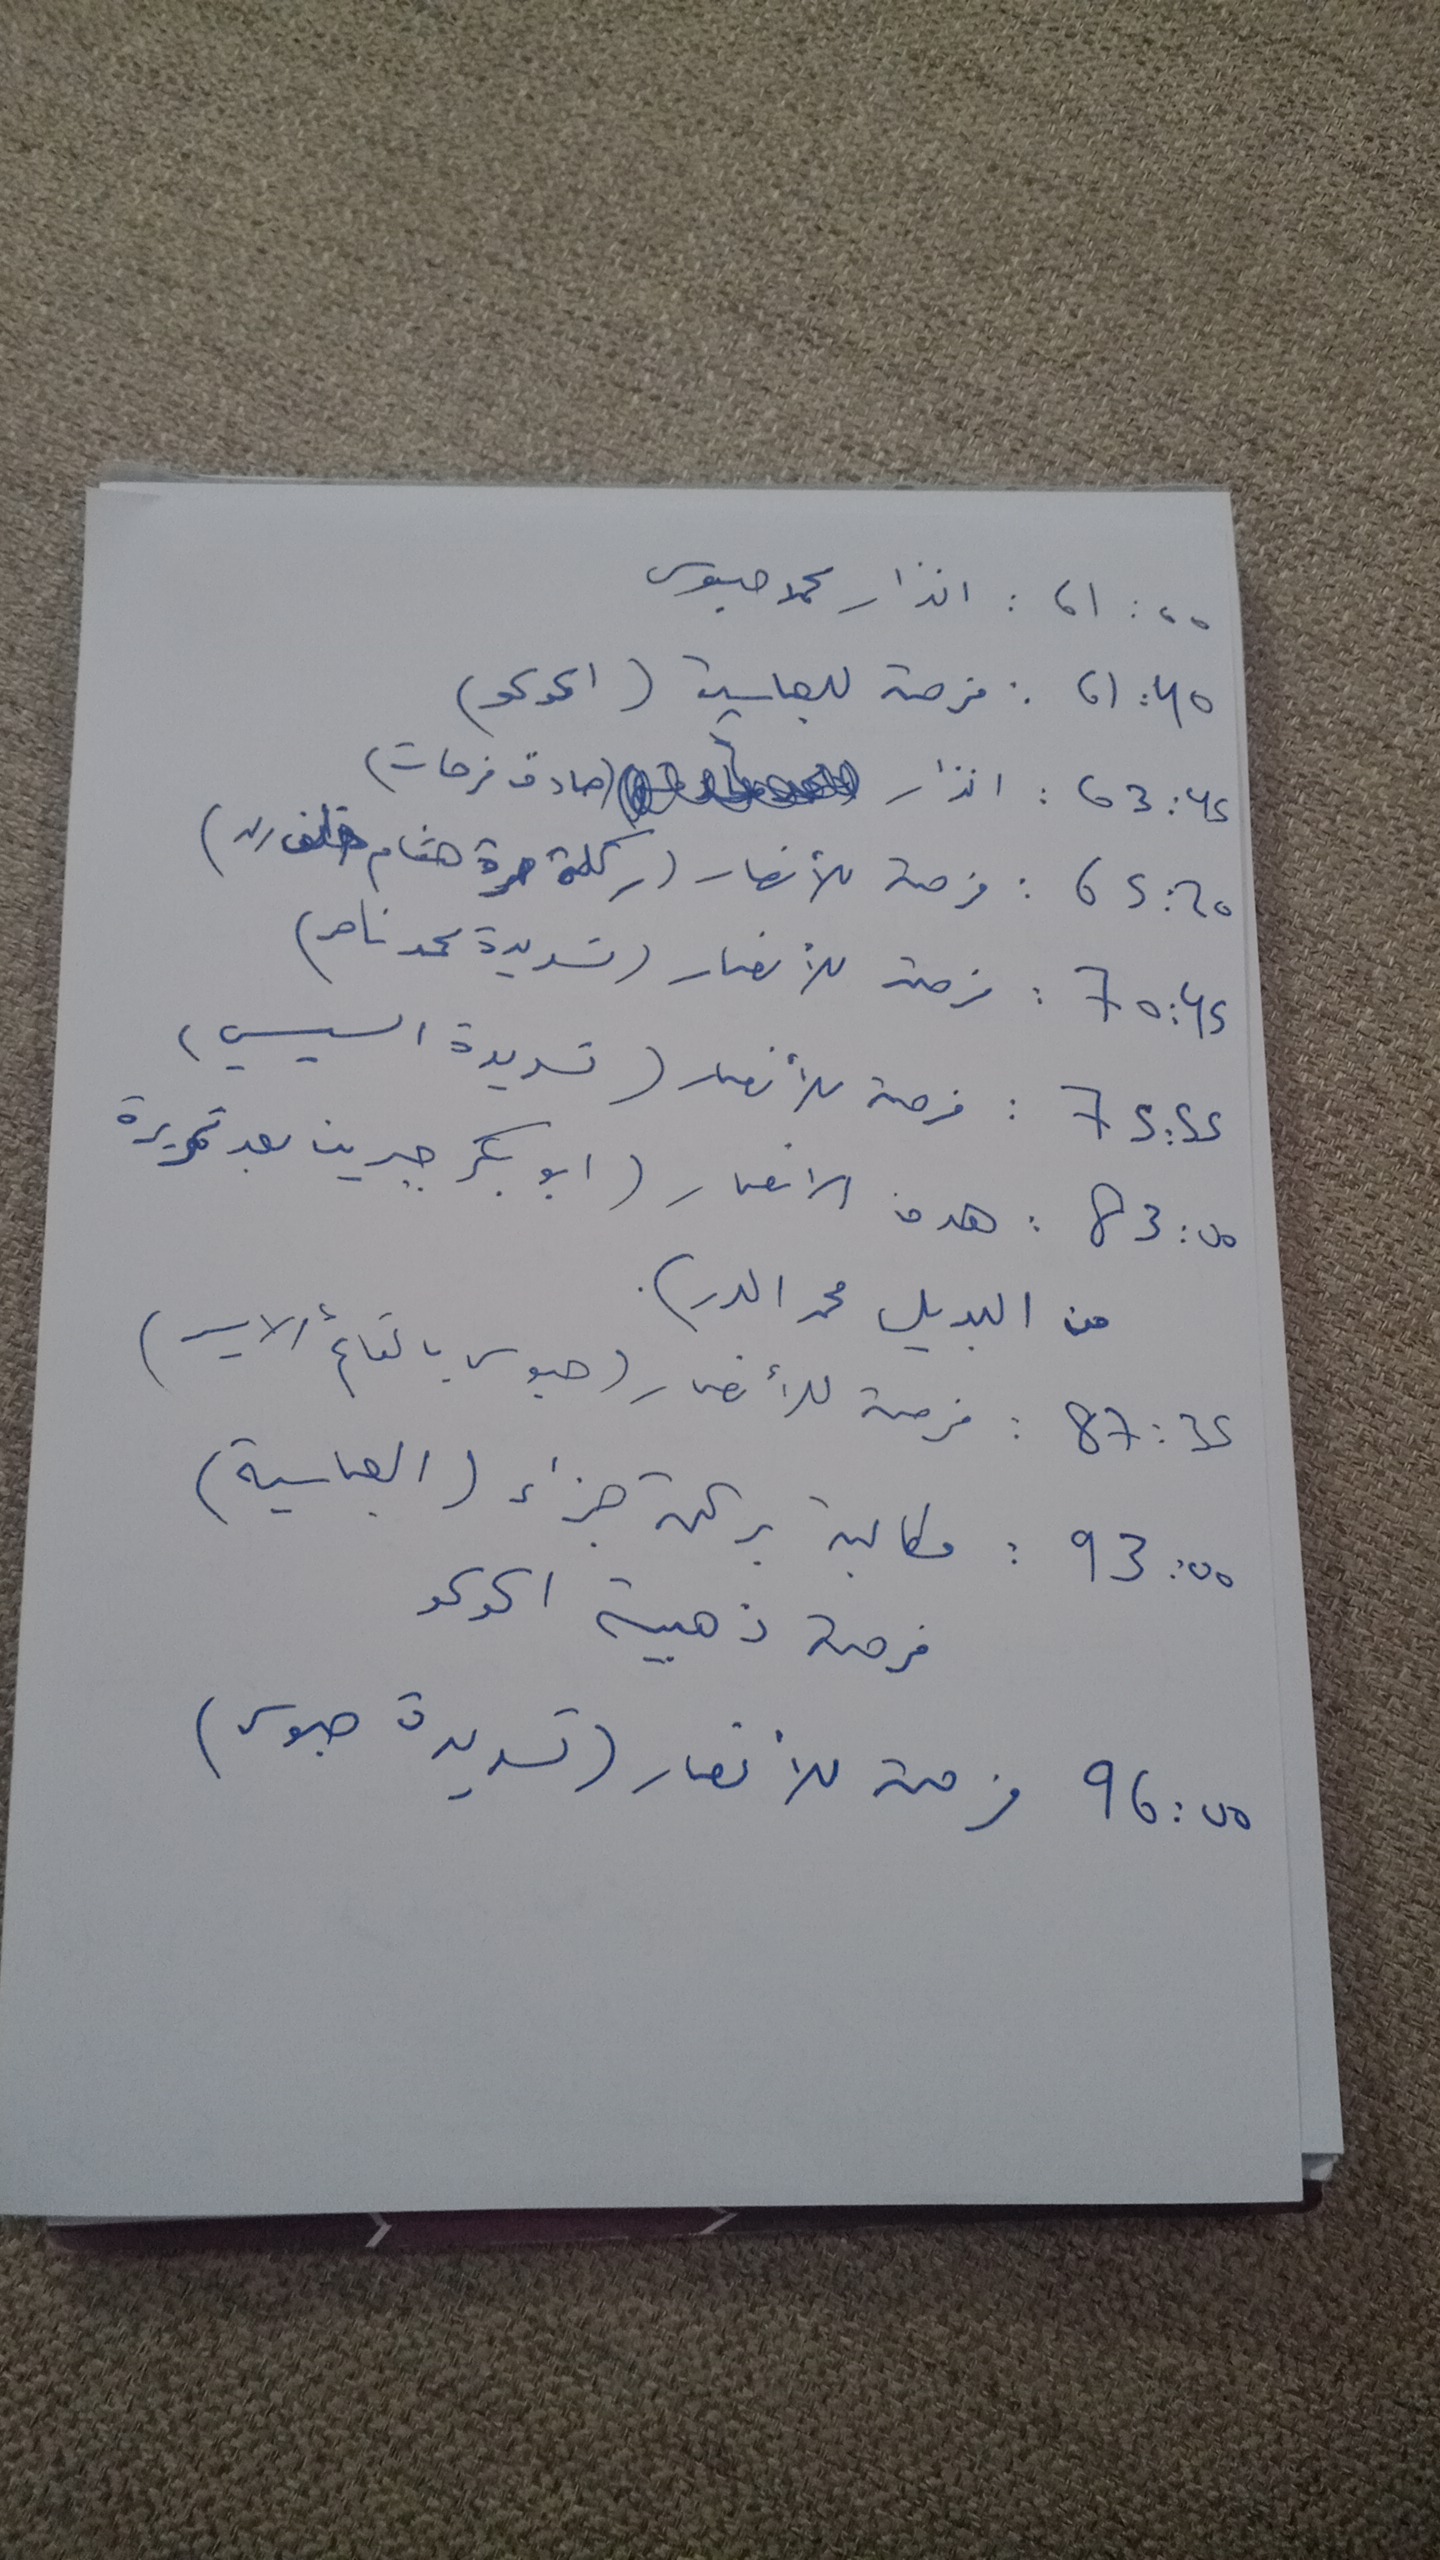 61:00 : انذار محمد حبوس
61:40 : فرصة للعباسية (الحوكو)
63:45 : انذار (صادق فرحات)
65:20 : فرصة للأنصار (ركلة حرة هشام خلف)
70:45 : فرصة للأنصار (تسديدة محمد ناصر)
75:55 : فرصة للأنصار (تسديدة السيسي)
83:00 : هدف الانصار (ابو بكر جبرين بعد تمريرة
من البديل محمد الدر).
87:35 : فرصة للأنصار (حبوس بالقائم الايسر)
93:00 : مطالبة بركلة جزاء (العباسية)
فرصة ذهبية الحوكو
96:00 فرصة للأنصار (تسديدة حبوس)